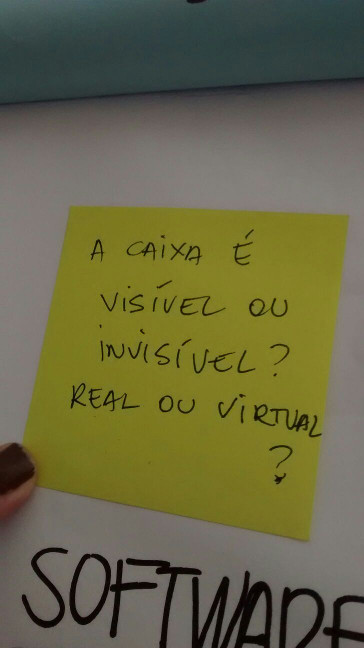 A CAIXA É
VISÍVEL OU
INVISÍVEL?
REAL OU VIRTUAL
?
SOFTWARE